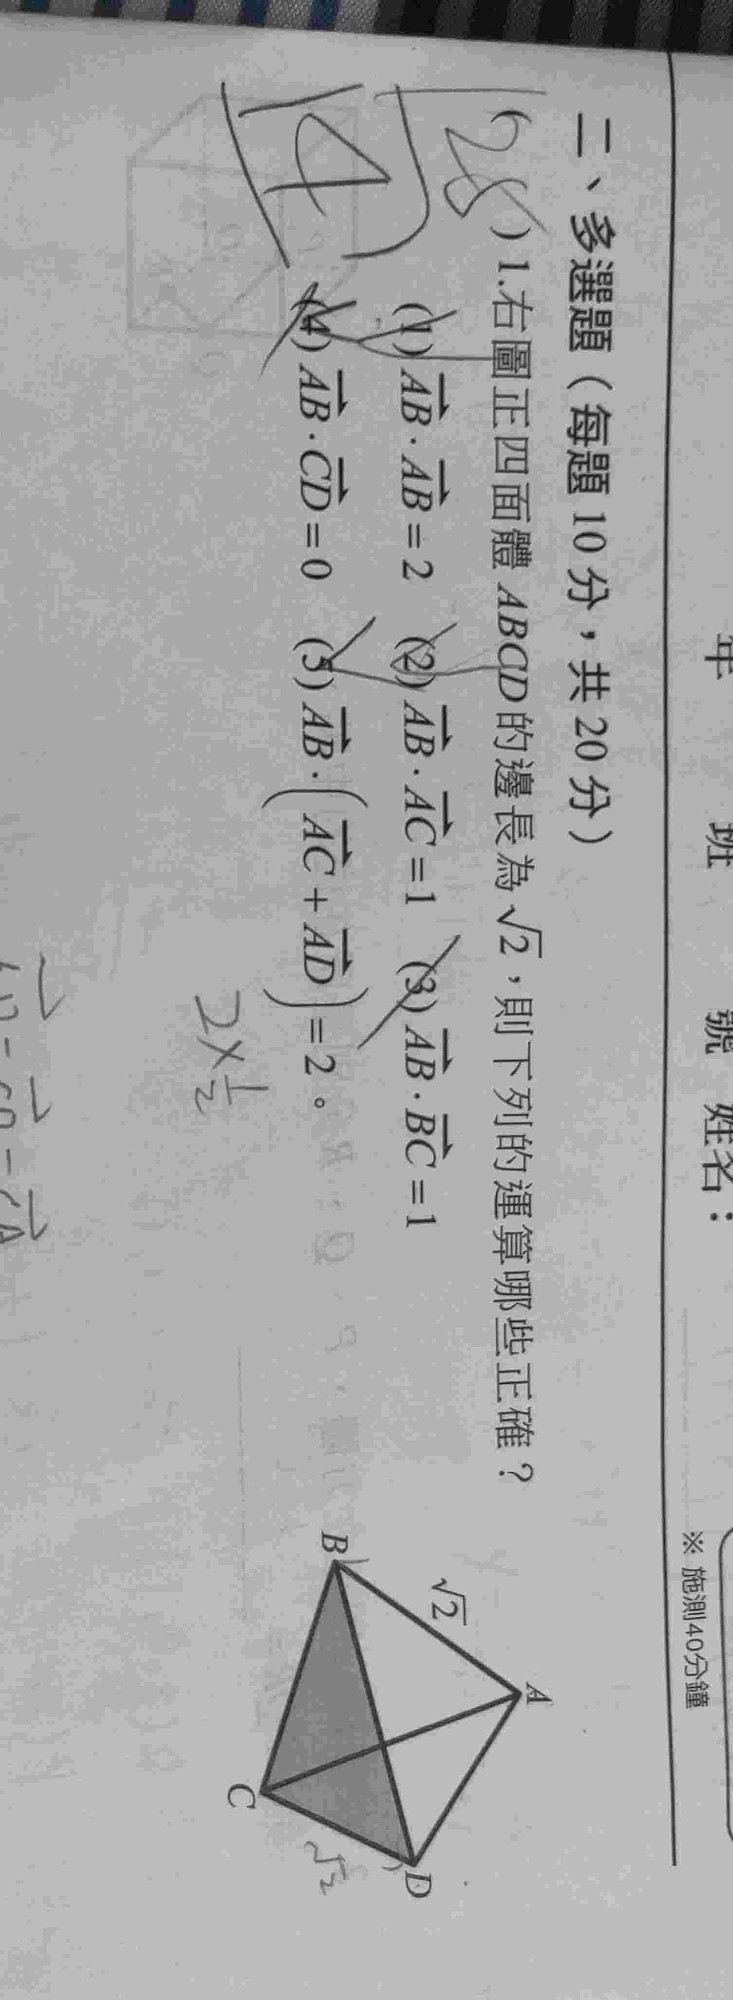 年 班 號 姓名：
※ 施測40分鐘
二、多選題（每題 10 分，共 20 分）
( ) 1.右圖正四面體 ABCD 的邊長為 √2，則下列的運算哪些正確？
(1) AB⃗ · AB⃗ = 2 (2) AB⃗ · AC⃗ = 1 (3) AB⃗ · BC⃗ = 1
(4) AB⃗ · CD⃗ = 0 (5) AB⃗ · (AC⃗ + AD⃗) = 2。
2×1/2
A
√2
B
D
C
√2